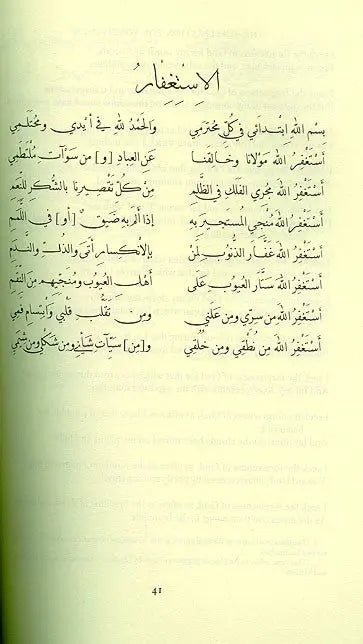 الاِسْتِغْفَارُ
بِسْمِ اللهِ اِبْتِدَائِي فِي كُلِّ مُحْتَرَمِي وَالْحَمْدُ لِلهِ فِي أَيْدِي وَمُخْتَتَمِي
أَسْتَغْفِرُ اللهَ مَوْلَانَا وَخَالِقَنَا عَنِ العِبَادِ [و] مِن سَوْآتِ مُلْتَطِمِي
أَسْتَغْفِرُ اللهَ مُجْرِي الفَلَكِ فِي الظُّلَمِ مِن كُلِّ تَقْصِيرِنَا بِالشُّكْرِ لِلنِّعَمِ
أَسْتَغْفِرُ اللهَ مُنْجِي المُسْتَجِيرِ بِهِ إِذَا أَلَمَّ بِهِ ضَيْقٌ [أو] فِي اللَّمَمِ
أَسْتَغْفِرُ اللهَ غَفَّارَ الذُّنُوبِ لِمَنْ بِالاِنْكِسَارِ أَتَى وَالذُّلِّ وَالنَّدَمِ
أَسْتَغْفِرُ اللهَ سَتَّارَ العُيُوبِ عَلَى أَهْلِ العُيُوبِ وَمُنْجِيهِم مِنَ النِّقَمِ
أَسْتَغْفِرُ اللهَ مِن سِرِّي وَمِن عَلَنِي وَمِن تَقَلُّبِ قَلْبِي وَابْتِسَامِ فَمِي
أَسْتَغْفِرُ اللهَ مِن نُطْقِي وَمِن خُلُقِي و[مِن] سَيِّآتِ شَأْنِي وَمِن شَكْلِي وَمِن شِيَمِي
41